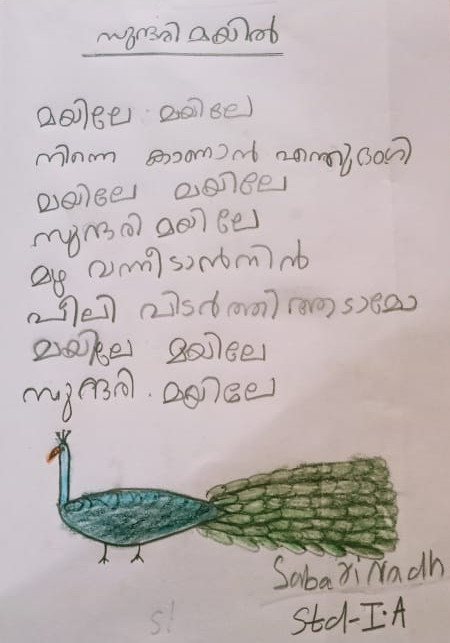 സുന്ദരി മയിൽ
മയിലേ മയിലേ
നിന്നെ കാണാൻ എന്തുഭംഗി
മയിലേ മയിലേ
സുന്ദരി മയിലേ
മഴ വന്നീടാൻനിൻ
പീലി വിടർത്തി ആടാമോ
മയിലേ മയിലേ
സുന്ദരി . മയിലേ
Sabari Nadh
Std-I.A